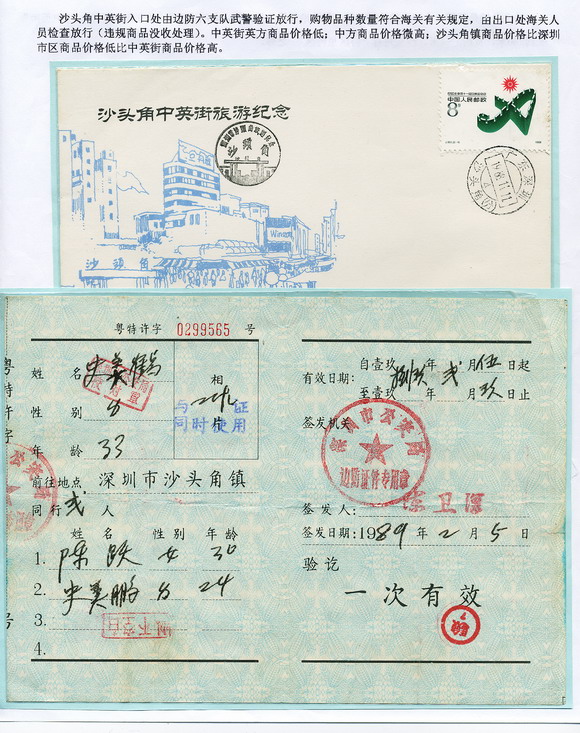 沙头角中英街入口处由边防六支队武警验证放行，购物品种数量符合海关有关规定，由出口处海关人
员检查放行（违规商品没收处理）。中英街英方商品价格低；中方商品价格微高；沙头角镇商品价格比深圳
市区商品价格低比中英街商品价格高。
沙头角中英街旅游纪念
中国人民邮政
8分
沙頭角
粤特许字 0299565 号
姓 名
性 别
年 龄 33
前往地点 深圳市沙头角镇
同行 贰 人
姓名 性别 年龄
1. 陈跃 女 30
2. 史美鹏 男 24
3.
4.
相
片
与 证
同时使用
自壹玖 年 贰 月 伍 日起
有效日期：
至壹玖 年 月 玖 日止
签发机关
深圳市公安局
边防证件专用章
签发人：
签发日期：1989 年 2 月 5 日
验讫
一次有效